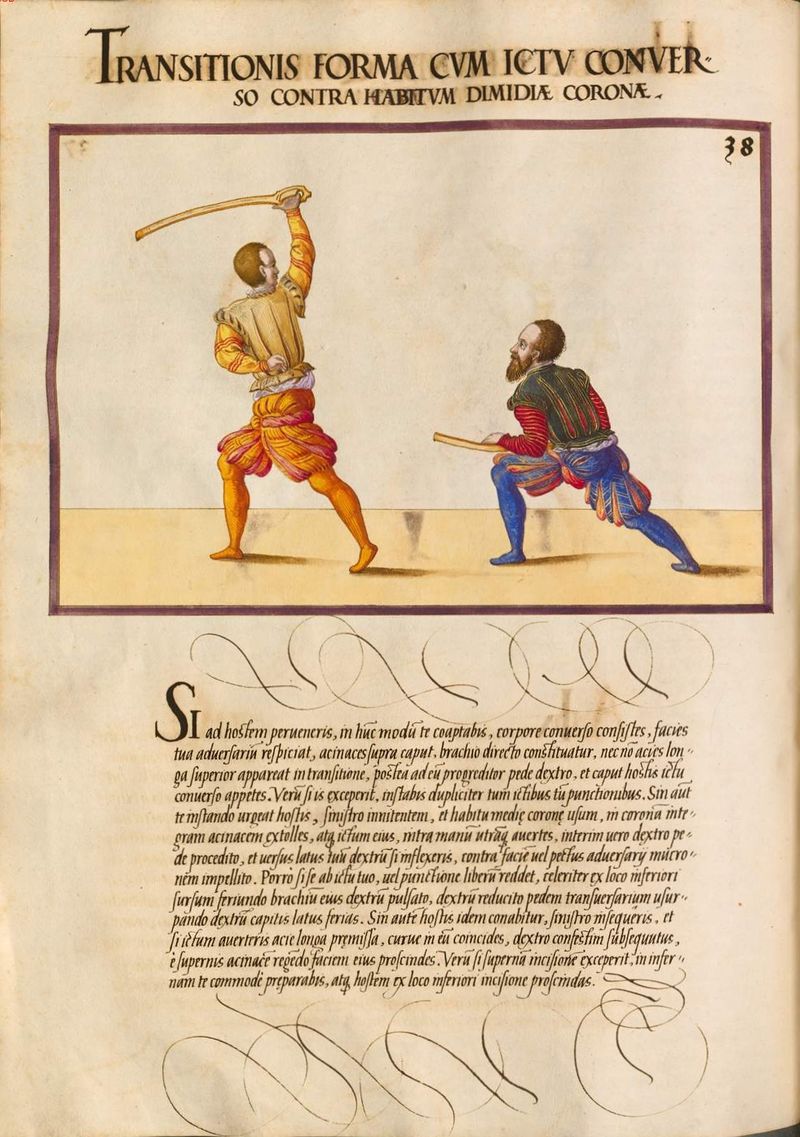 TRANSITIONIS FORMA CVM ICTV CONVER„
SO CONTRA HABITVM DIMIDIÆ CORONÆ.
38
SI ad hostem perueneris, in hūc modū te coaptabis, corpore conuerso consistes, facies
tua aduersariū respiciat, acinaces supra caput, brachio directo constituatur, nec nō acies lon„
ga superior appareat in transitione, postea ad eū progreditor pede dextro, et caput hostis ictu
conuerso appetes. Verū si is exceperit, instabis dupliciter tum ictibus tū punctionibus. Sin aut
te instando urgeat hostis, sinistro innitentem, et habitu medię coronę usum, in corona inte„
gram acinacem extolles, atq ictum eius, intra manū utrāq auertes, interim uero dextro pe„
de procedito, et uersus latus tuū dextrū si inflexeris, contra faciē uel pectus aduersarij mucro„
nēm impellito. Porro si se ab ictu tuo, uel punctione liberū reddet, celeriter ex loco inferiori
sursum feriundo brachiū eius dextrū pulsato, dextrū reducito pedem transuersarium usur„
pando dextrū capitis latus ferias. Sin aute hostis idem conabitur, sinistro insequeris, et
si ictum auerteris acie longa premissa, curue in eū coincides, dextro confestim subsequutus,
è supernis acinacē regedo faciem eius proscindes. Verū si superna incisione exceperit, in infer„
nam te commodè preparabis, atq hostem ex loco inferiori incisione proscindas.